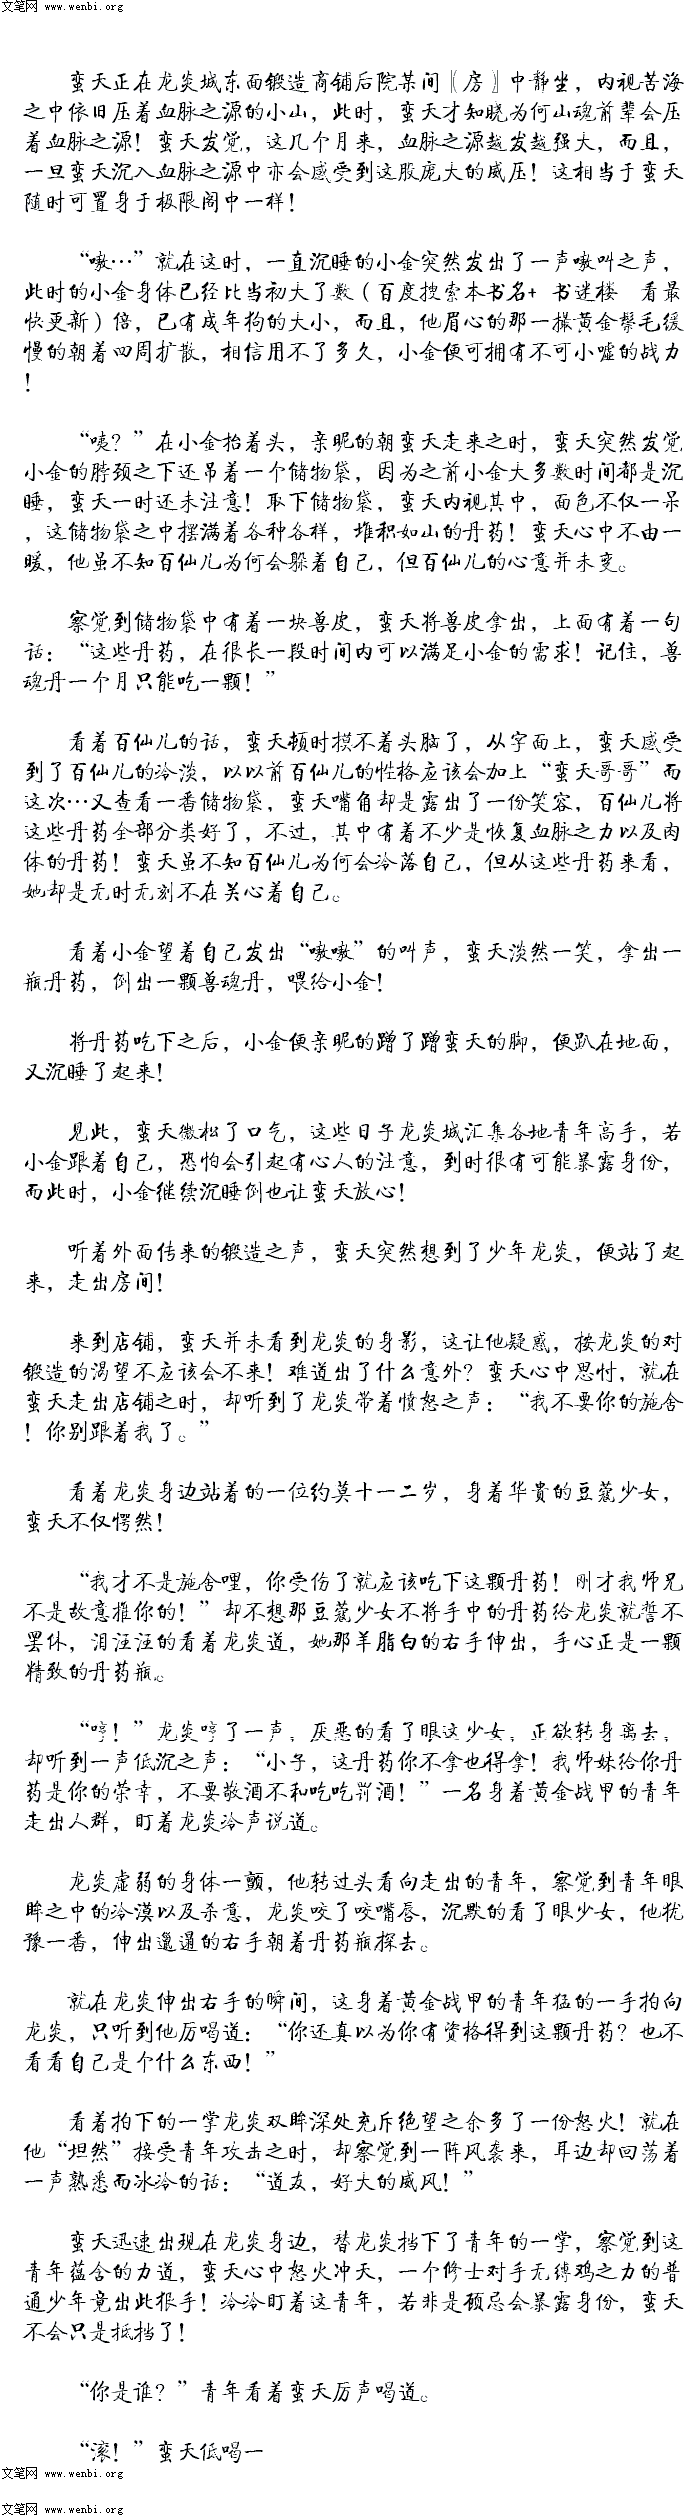 文笔网 www.wenbi.org
蛮天正在龙炎城东面锻造商铺后院某间〖房〗中静坐，内视苦海
之中依旧压着血脉之源的小山，此时，蛮天才知晓为何山魂前辈会压
着血脉之源！蛮天发觉，这几个月来，血脉之源越发越强大，而且，
一旦蛮天沉入血脉之源中亦会感受到这股庞大的威压！这相当于蛮天
随时可置身于极限阁中一样！
“嗷…”就在这时，一直沉睡的小金突然发出了一声嗷叫之声，
此时的小金身体已经比当初大了数（百度搜索本书名+ 书迷楼 看最
快更新）倍，已有成年狗的大小，而且，他眉心的那一撮黄金鬃毛缓
慢的朝着四周扩散，相信用不了多久，小金便可拥有不可小嘘的战力
！
“咦？”在小金抬着头，亲昵的朝蛮天走来之时，蛮天突然发觉
小金的脖颈之下还吊着一个储物袋，因为之前小金大多数时间都是沉
睡，蛮天一时还未注意！取下储物袋，蛮天内视其中，面色不仅一呆
，这储物袋之中摆满着各种各样，堆积如山的丹药！蛮天心中不由一
暖，他虽不知百仙儿为何会躲着自己，但百仙儿的心意并未变。
察觉到储物袋中有着一块兽皮，蛮天将兽皮拿出，上面有着一句
话：“这些丹药，在很长一段时间内可以满足小金的需求！记住，兽
魂丹一个月只能吃一颗！”
看着百仙儿的话，蛮天顿时摸不着头脑了，从字面上，蛮天感受
到了百仙儿的冷淡，以以前百仙儿的性格应该会加上“蛮天哥哥”而
这次…又查看一番储物袋，蛮天嘴角却是露出了一份笑容，百仙儿将
这些丹药全部分类好了，不过，其中有着不少是恢复血脉之力以及肉
体的丹药！蛮天虽不知百仙儿为何会冷落自己，但从这些丹药来看，
她却是无时无刻不在关心着自己。
看着小金望着自己发出“嗷嗷”的叫声，蛮天淡然一笑，拿出一
瓶丹药，倒出一颗兽魂丹，喂给小金！
将丹药吃下之后，小金便亲昵的蹭了蹭蛮天的脚，便趴在地面，
又沉睡了起来！
见此，蛮天微松了口气，这些日子龙炎城汇集各地青年高手，若
小金跟着自己，恐怕会引起有心人的注意，到时很有可能暴露身份，
而此时，小金继续沉睡倒也让蛮天放心！
听着外面传来的锻造之声，蛮天突然想到了少年龙炎，便站了起
来，走出房间！
来到店铺，蛮天并未看到龙炎的身影，这让他疑惑，按龙炎的对
锻造的渴望不应该会不来！难道出了什么意外？蛮天心中思忖，就在
蛮天走出店铺之时，却听到了龙炎带着愤怒之声：“我不要你的施舍
！你别跟着我了。”
看着龙炎身边站着的一位约莫十一二岁，身着华贵的豆蔻少女，
蛮天不仅愕然！
“我才不是施舍哩，你受伤了就应该吃下这颗丹药！刚才我师兄
不是故意推你的！”却不想那豆蔻少女不将手中的丹药给龙炎就誓不
罢休，泪汪汪的看着龙炎道，她那羊脂白的右手伸出，手心正是一颗
精致的丹药瓶。
“哼！”龙炎哼了一声，厌恶的看了眼这少女，正欲转身离去，
却听到一声低沉之声：“小子，这丹药你不拿也得拿！我师妹给你丹
药是你的荣幸，不要敬酒不和吃吃罚酒！”一名身着黄金战甲的青年
走出人群，盯着龙炎冷声说道。
龙炎虚弱的身体一颤，他转过头看向走出的青年，察觉到青年眼
眸之中的冷漠以及杀意，龙炎咬了咬嘴唇，沉默的看了眼少女，他犹
豫一番，伸出邋遢的右手朝着丹药瓶探去。
就在龙炎伸出右手的瞬间，这身着黄金战甲的青年猛的一手拍向
龙炎，只听到他厉喝道：“你还真以为你有资格得到这颗丹药？也不
看看自己是个什么东西！”
看着拍下的一掌龙炎双眸深处充斥绝望之余多了一份怒火！就在
他“坦然”接受青年攻击之时，却察觉到一阵风袭来，耳边却回荡着
一声熟悉而冰冷的话：“道友，好大的威风！”
蛮天迅速出现在龙炎身边，替龙炎挡下了青年的一掌，察觉到这
青年蕴含的力道，蛮天心中怒火冲天，一个修士对手无缚鸡之力的普
通少年竟出此狠手！冷冷盯着这青年，若非是顾忌会暴露身份，蛮天
不会只是抵挡了！
“你是谁？”青年看着蛮天厉声喝道。
“滚！”蛮天低喝一
文笔网 www.wenbi.org
文笔网 www.wenbi.org